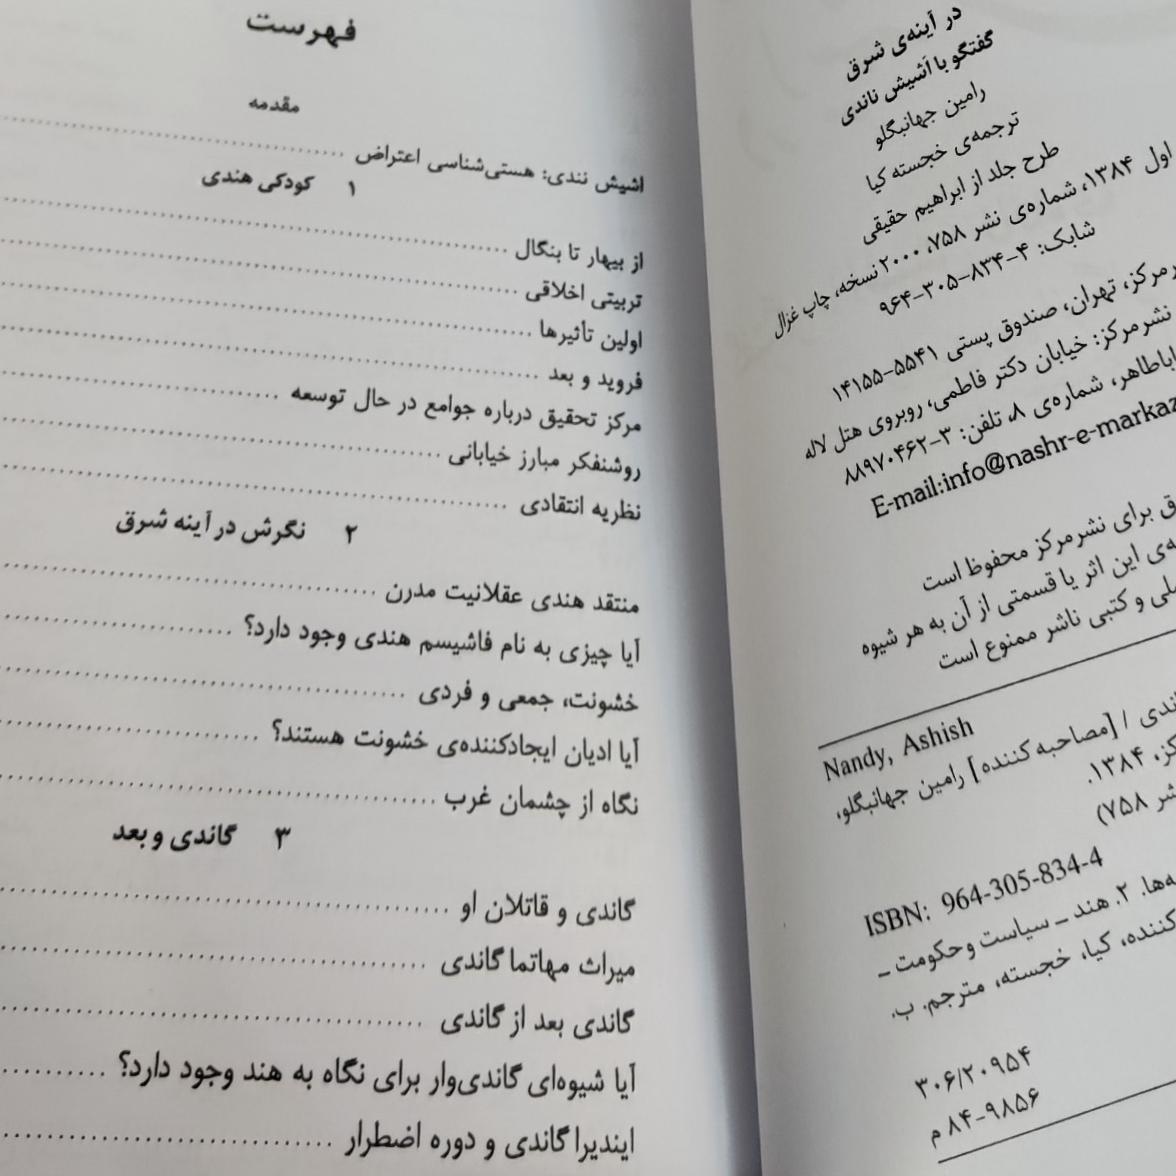 در آینه‌ی شرق
گفتگو با اَشیش ناندی
رامین جهانبگلو
ترجمه‌ی خجسته کیا
طرح جلد از ابراهیم حقیقی
اول ۱۳۸۴، شماره‌ی نشر ۷۵۸، ۲۰۰۰ نسخه، چاپ غزال
شابک: ۴-۸۳۴-۳۰۵-۹۶۴
مرکز، تهران، صندوق پستی ۵۵۴۱-۱۴۱۵۵
نشرمرکز: خیابان دکتر فاطمی، روبروی هتل لاله
باباطاهر، شماره‌ی ۸، تلفن: ۳-۸۸۹۷۰۴۶۲
E-mail:info@nashr-e-markaz
برای نشرمرکز محفوظ است
این اثر یا قسمتی از آن به هر شیوه
و کتبی ناشر ممنوع است
Nandy, Ashish
/ [مصاحبه کننده] رامین جهانبگلو،
۱۳۸۴.
نشر ۷۵۸)
ISBN: 964-305-834-4
۲. هند ــ سیاست و حکومت ــ
کننده، کیا، خجسته، مترجم. ب.
۳۰۶/۲۰۹۵۴
۸۴-۹۸۵۶ م
فهرست
مقدمه
اشیش نندی: هستی‌شناسی اعتراض ........................
۱ کودکی هندی
از بیهار تا بنگال ........................
تربیتی اخلاقی ........................
اولین تأثیرها ........................
فروید و بعد ........................
مرکز تحقیق درباره جوامع در حال توسعه ........................
روشنفکر مبارز خیابانی ........................
نظریه انتقادی ........................
۲ نگرش در آینه شرق
منتقد هندی عقلانیت مدرن ........................
آیا چیزی به نام فاشیسم هندی وجود دارد؟ ........................
خشونت، جمعی و فردی ........................
آیا ادیان ایجادکننده‌ی خشونت هستند؟ ........................
نگاه از چشمان غرب ........................
۳ گاندی و بعد
گاندی و قاتلان او ........................
میراث مهاتما گاندی ........................
گاندی بعد از گاندی ........................
آیا شیوه‌ای گاندی‌وار برای نگاه به هند وجود دارد؟ ..........
ایندیرا گاندی و دوره اضطرار ........................